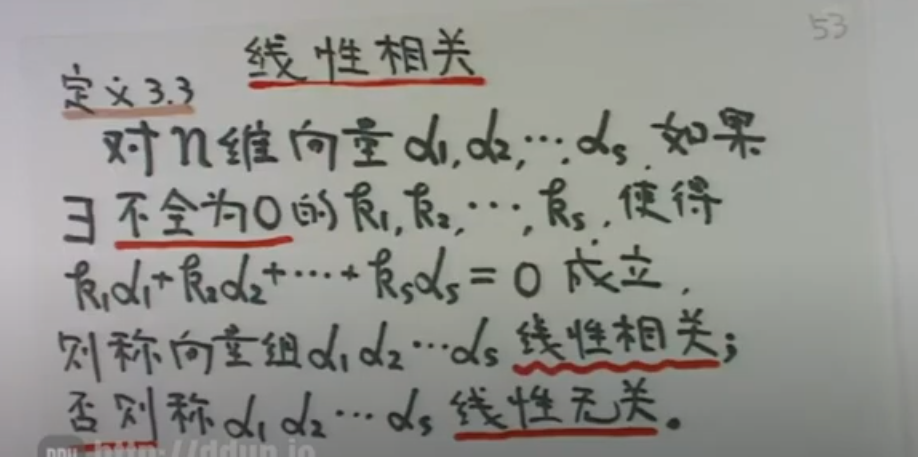 53
线性相关
定义3.3
对n维向量α1,α2,…,αs,如果
∃不全为0的k1,k2,…,ks,使得
k1α1+k2α2+…+ksαs=0成立,
则称向量组α1α2…αs线性相关;
否则称α1α2…αs线性无关。
http://ddup.io